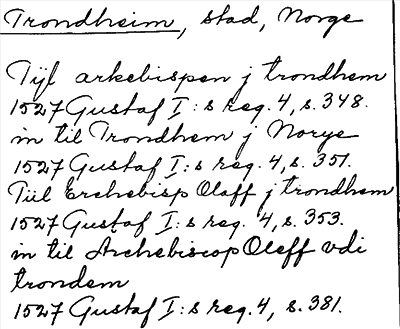 Trondheim, stad, Norge
Tijl arkebispen j trondhem
1527 Gustaf I:s reg. 4, s. 348.
in til Trondhem j Norye
1527 Gustaf I:s reg. 4, s. 351.
Tiil Erchebisp Olaff j trondhem
1527 Gustaf I:s reg. 4, s. 353.
in til Archebiscop Oleff vdi
trondem
1527 Gustaf I:s reg. 4, s. 381.